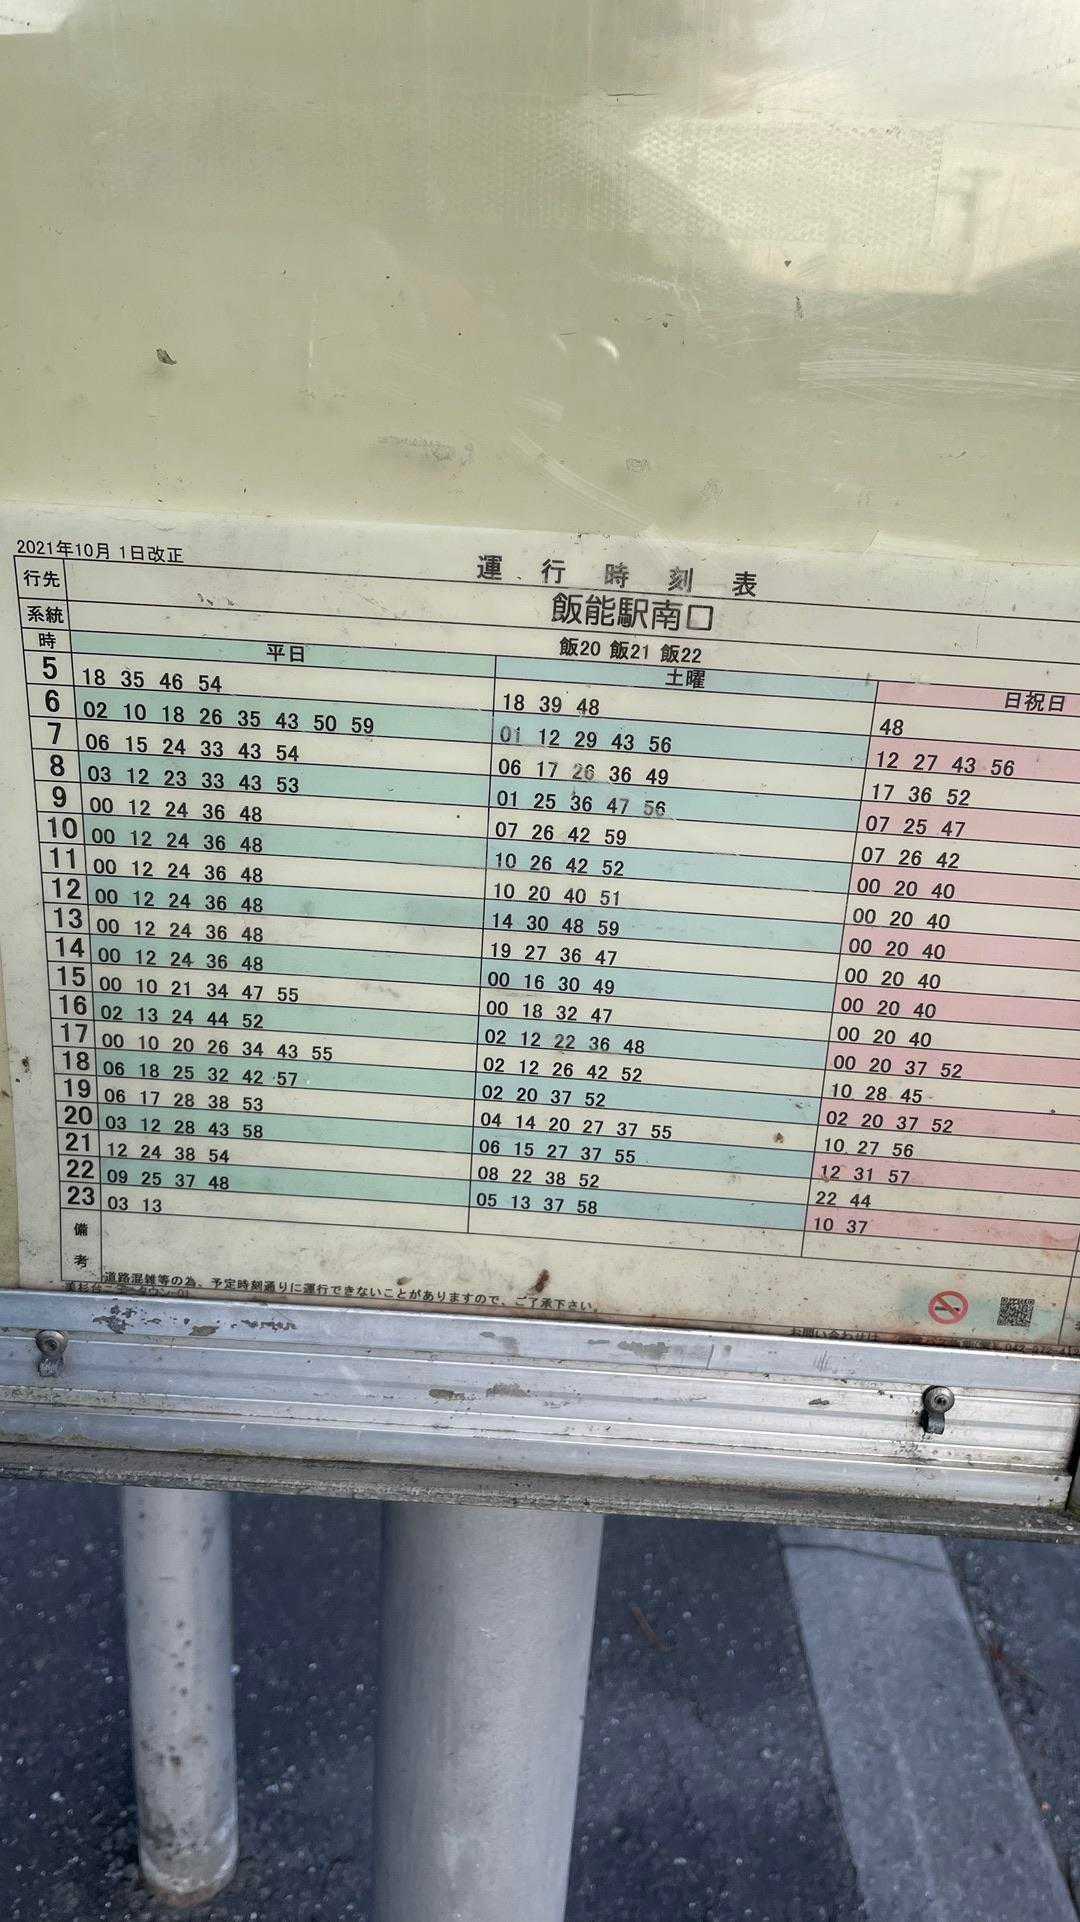 2021年10月 1日改正
運行時刻表
行先 飯能駅南口
系統 飯20 飯21 飯22
時 平日 土曜 日祝日
5 18 35 46 54 18 39 48 48
6 02 10 18 26 35 43 50 59 01 12 29 43 56 12 27 43 56
7 06 15 24 33 43 54 06 17 26 36 49 17 36 52
8 03 12 23 33 43 53 01 25 36 47 56 07 25 47
9 00 12 24 36 48 07 26 42 59 07 26 42
10 00 12 24 36 48 10 26 42 52 00 20 40
11 00 12 24 36 48 10 20 40 51 00 20 40
12 00 12 24 36 48 14 30 48 59 00 20 40
13 00 12 24 36 48 19 27 36 47 00 20 40
14 00 12 24 36 48 00 16 30 49 00 20 40
15 00 10 21 34 47 55 00 18 32 47 00 20 40
16 02 13 24 44 52 02 12 22 36 48 00 20 37 52
17 00 10 20 26 34 43 55 02 12 26 42 52 10 28 45
18 06 18 25 32 42 57 02 20 37 52 02 20 37 52
19 06 17 28 38 53 04 14 20 27 37 55 10 27 56
20 03 12 28 43 58 06 15 27 37 55 12 31 57
21 12 24 38 54 08 22 38 52 22 44
22 09 25 37 48 05 13 37 58 10 37
23 03 13
備考
道路混雑等の為、予定時刻通りに運行できないことがありますので、ご了承下さい。
お問い合わせは